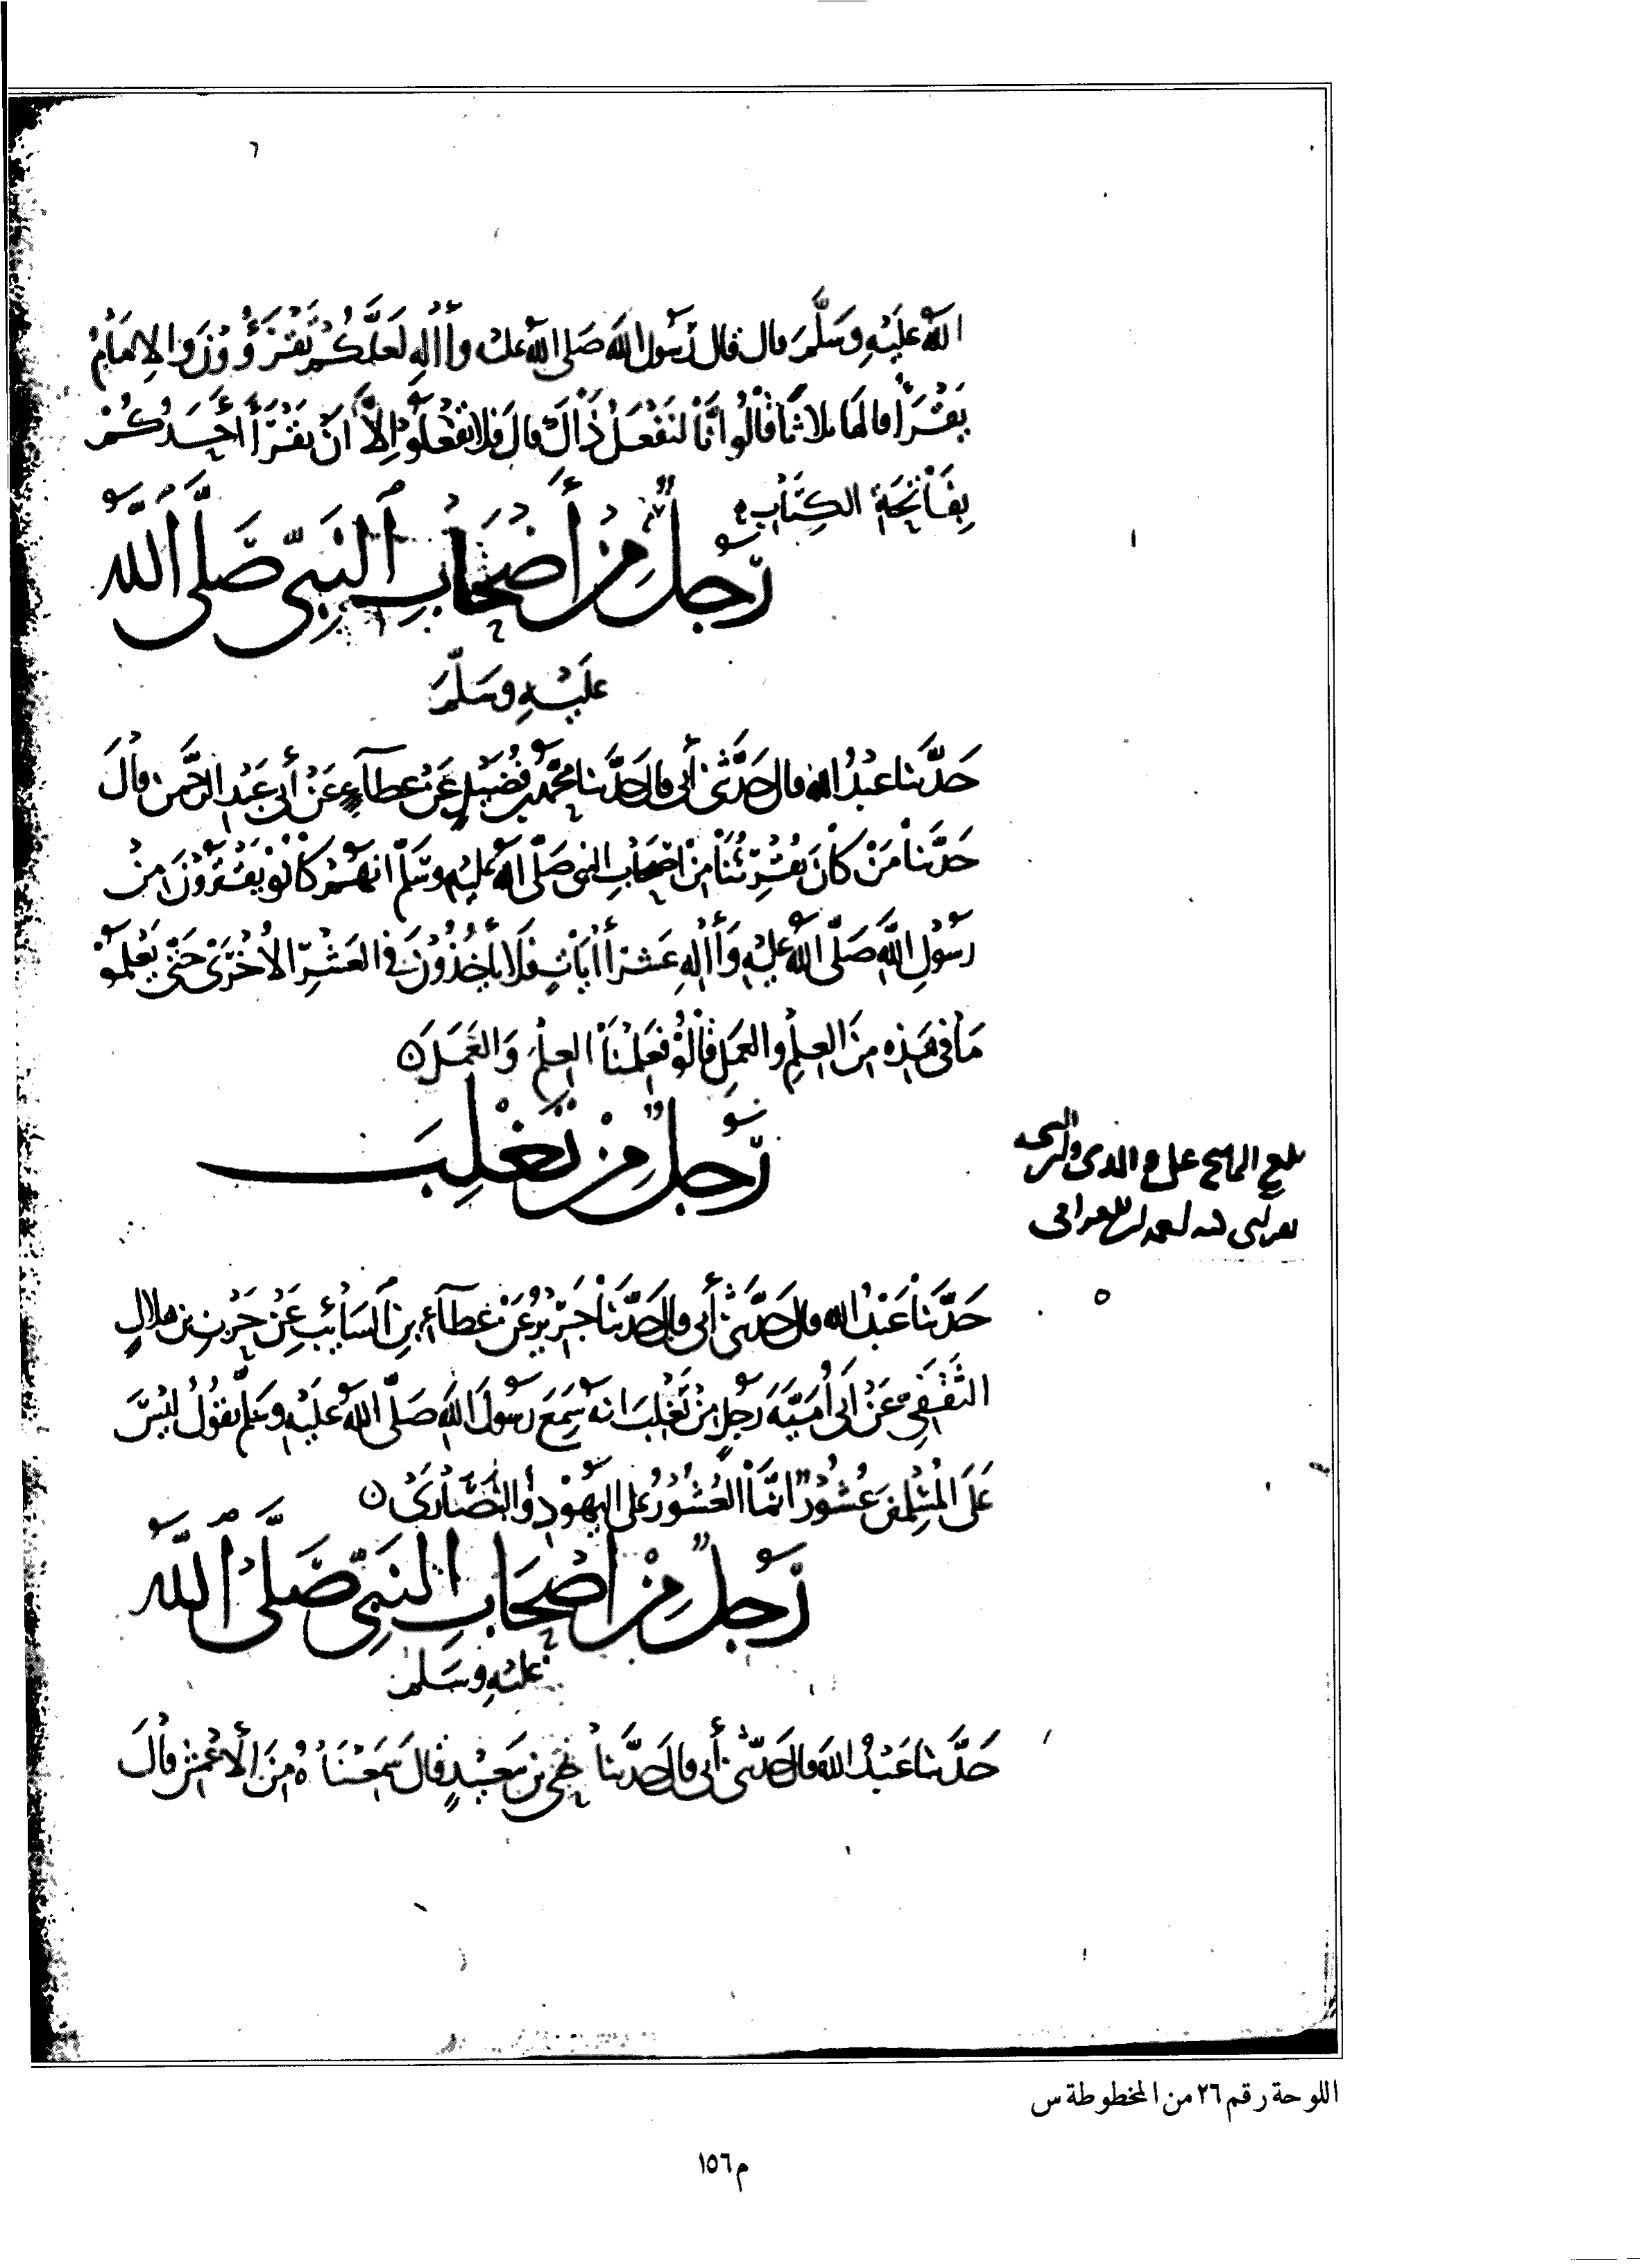 الله عَلَيْهِ وَسَلَّمَ قال قال رَسُول الله صَلى الله عليه وأاله لَعَلَّكُمْ تَقْرَؤُونَ والإِمَامُ
يَقْرَأُ قالها ثلاثًا قَالُوا إِنَّا لنَفْعَلُ ذَاكَ قال فلا تَفْعَلُوا إِلَّا أنْ يَقْرَأَ أَحَدُكُمْ
بِفَاتِحَةِ الكِتَابِ
رَجُلٌ مِنْ أَصْحَابِ النَّبِيِّ صَلَّى اللَّه
عَلَيْهِ وَسَلَّمَ
حَدَّثنا عَبْدُ الله قال حَدَّثَنِي أَبي قال حَدَّثنا محمَّد بن فُضَيْلٍ عَنْ عَطاءٍ عَنْ أَبي عَبْدِ الرَّحْمن قالَ
حَدَّثنَا مَنْ كَانَ يُقْرِئُنَا مِنْ أصْحَابِ النبي صَلَّى الله عليه وسَلَّم انهُمْ كَانُوْ يَقْتَرِؤُنَ مِنْ
رَسُولِ اللَّهِ صَلَّى اللهُ عَلَيْهِ وَأَالِهِ عَشْرَ أَايَاتٍ فَلَا يَأْخُذُوْنَ في العَشْرِ الأُخْرَى حَتَّى يَعْلَمُوْ
مَا في هَذِه مِنَ العِلْمِ والعَمَلِ قَالُوْ فَعَلِمْنَا العِلْمَ وَالعَمَلَ ن
رَجُلٌ مِنْ تَغْلِبَ
حَدَّثَنَا عَبْدُ الله قال حَدَّثَنِي أَبي قال حَدَّثَنَا جَرِيْرٌ عَنْ عَطاءِ بنِ السَّائِبِ عَنْ حَرْبِ بنِ هِلالٍ
الثَّقَفِي عَنْ أَبي أُمَيَّةَ رَجُلٍ مِنْ تَغْلِبَ انه سَمِعَ رَسُولَ اللهِ صَلَّى اللهُ عَلَيْهِ وسَلَّم يَقُوْلُ لَيْسَ
عَلَى المُسْلِمِيْنَ عُشُوْرٌ انَّمَا العُشُوْرُ عَلى اليَهُوْدِ وَالنَّصَارَىْ ن
رَجُلٌ مِنْ أَصْحَابِ النَّبِيِّ صَلَّى اللَّه
عَلَيْهِ وَسَلم
حَدَّثنا عَبْدُ الله قال حَدَّثَنِي أَبي قال حَدَّثنَا يَحْيَى بن سَعِيْدٍ قَالَ سَمِعْنَاهُ مِنَ الأَعْمَشِ قالَ
اللوحة رقم ٢٦ من المخطوطة س
م ١٥٦